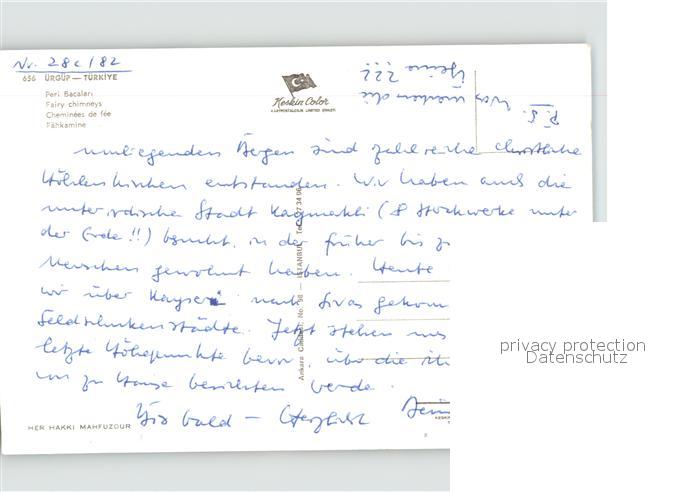 Nr. 28c/82
656 ÜRGÜP — TÜRKİYE
Peri Bacaları
Fairy chimneys
Cheminées de fée
Fähkamine
Keskin Color
KARTPOSTALCILIK LIMITED ŞİRKETİ
P.S. Was machen die
Steine ???
umliegenden Bergen sind zahlreiche christliche
Höhlenkirchen entstanden. Wir haben auch die
unterirdische Stadt Kaymakli (8 Stockwerke unter
der Erde!!) besucht, in der früher bis z
Menschen gewohnt haben. Heute
wir über Kayseri nach Sivas gekom
städte. Jetzt stehen uns
letzte Höhepunkte bevor, über die ich
zu Hause berichten werde.
Bis bald — Herzlichst
Ankara Caddesi No: 98 — İSTANBUL
HER HAKKI MAHFUZDUR
privacy protection
Datenschutz